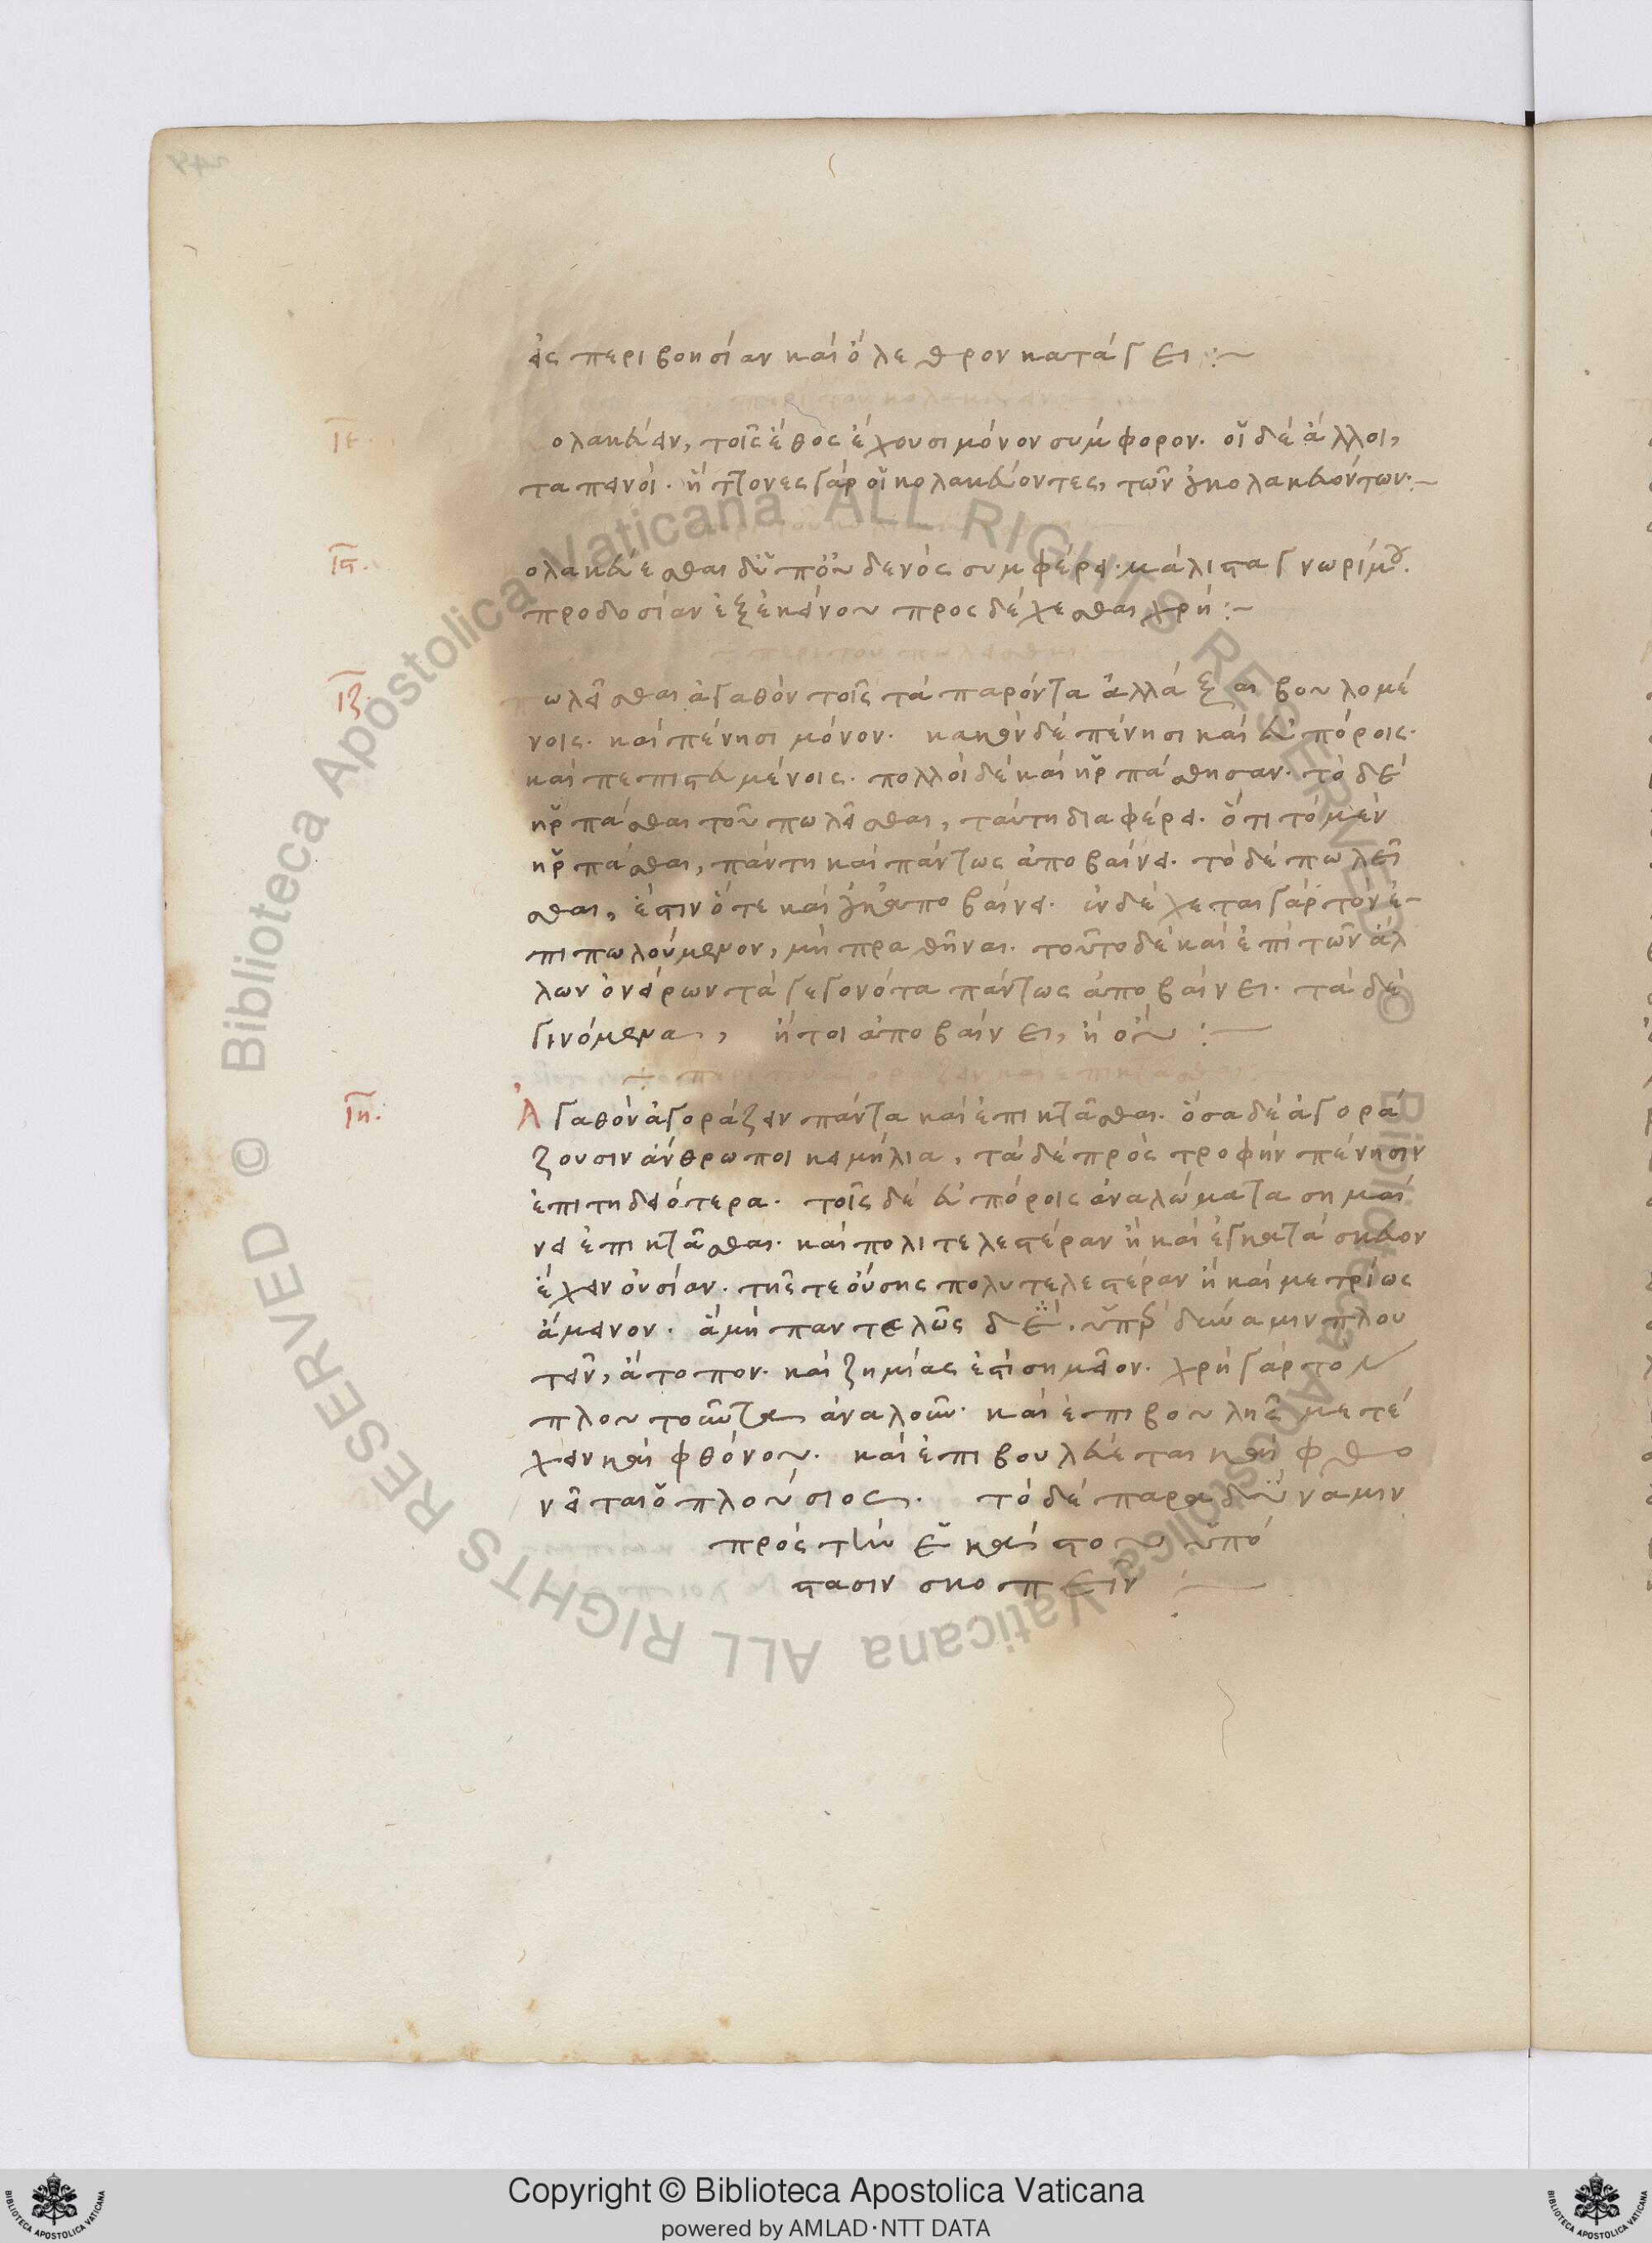 εἰς περιβοησίαν καὶ ὄλεθρον κατάγει :~
περὶ τοῦ κολακεύειν
ιε. ολακεύειν, τοῖς ἔθος ἔχουσι μόνον σύμφορον. οἱ δὲ ἄλλοι,
ταπεινοί. ἥττονες γὰρ οἱ κολακεύοντες, τῶν μὴ κολακευόντων :~
ις. ολακεύεσθαι δὲ ὑπ' οὐδενὸς συμφέρει. μάλιστα γνωρίμου.
προδοσίαν ἐξ ἐκείνου προσδέχεσθαι χρή :~
περὶ τοῦ πωλεῖσθαι
ιζ. πωλεῖσθαι ἀγαθὸν τοῖς τὰ παρόντα ἀλλάξαι βουλομέ
νοις. καὶ πένησι μόνον. κακὸν δὲ πένησι καὶ εὐπόροις.
καὶ πεπιστευμένοις. πολλοὶ δὲ καὶ ἡρπάσθησαν. τὸ δὲ
ἡρπάσθαι τοῦ πωλεῖσθαι, ταύτη διαφέρει. ὅτι τὸ μὲν
ἡρπάσθαι, πάντη καὶ πάντως ἀποβαίνει. τὸ δὲ πωλεῖ
σθαι, ἔστιν ὅτε καὶ μὴ ἀποβαίνει. ἐνδέχεται γὰρ τὸν ἐ-
πιπωλούμενον, μὴ πραθῆναι. τοῦτο δὲ καὶ ἐπὶ τῶν ἀλ
λων ὀνείρων τὰ γεγονότα πάντως ἀποβαίνει. τὰ δὲ
γινόμενα, ἤτοι ἀποβαίνει, ἢ οὔ :~
περὶ τοῦ ἀγοράζειν καὶ ἐπικτᾶσθαι
ιη. Ἀγαθὸν ἀγοράζειν πάντα καὶ ἐπικτᾶσθαι. ὅσα δὲ ἀγορά
ζουσιν ἄνθρωποι κειμήλια, τὰ δὲ πρὸς τροφὴν πένησιν
ἐπιτηδειότερα. τοῖς δὲ εὐπόροις ἀναλώματα σημαί
νει ἐπικτᾶσθαι. καὶ πολιτελεστέραν ἢ καὶ ἐγκατάσκευον
ἔχειν οὐσίαν. τῆς τε οὔσης πολυτελεστέραν ἢ καὶ μετρίως
ἄμεινον. ἃ μὴ παντελῶς δὲ. ὑπὲρ δύναμιν πλου
τεῖν, ἄτοπον. καὶ ζημίας ἐστὶ σημεῖον. χρὴ γὰρ τὸν
πλουτοῦντα ἀναλοῦν. καὶ ἐπιβουλῆς μετέ
χειν καὶ φθόνου. καὶ ἐπιβουλεύεται καὶ φθο
νεῖται ὁ πλούσιος. τὸ δὲ παρὰ δύναμιν
πρὸς τὴν ἑκάστου ὑπό
στασιν σκοπεῖν :~
Copyright © Biblioteca Apostolica Vaticana
powered by AMLAD·NTT DATA